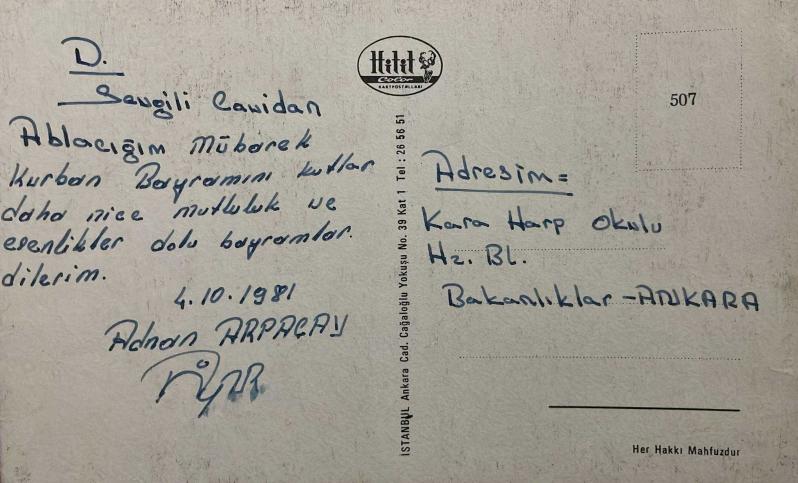 D.
Sevgili Canidan
Ablacığım Mübarek
Kurban Bayramını kutlar
daha nice mutluluk ve
esenlikler dolu bayramlar.
dilerim.
4.10.1981
Adnan ARPAÇAY
Hilit
Color
KARTPOSTALLARI
İSTANBUL Ankara Cad. Cağaloğlu Yokuşu No. 39 Kat 1 Tel : 26 56 51
507
Adresim=
Kara Harp Okulu
Hz. Bl.
Bakanlıklar - ANKARA
Her Hakkı Mahfuzdur